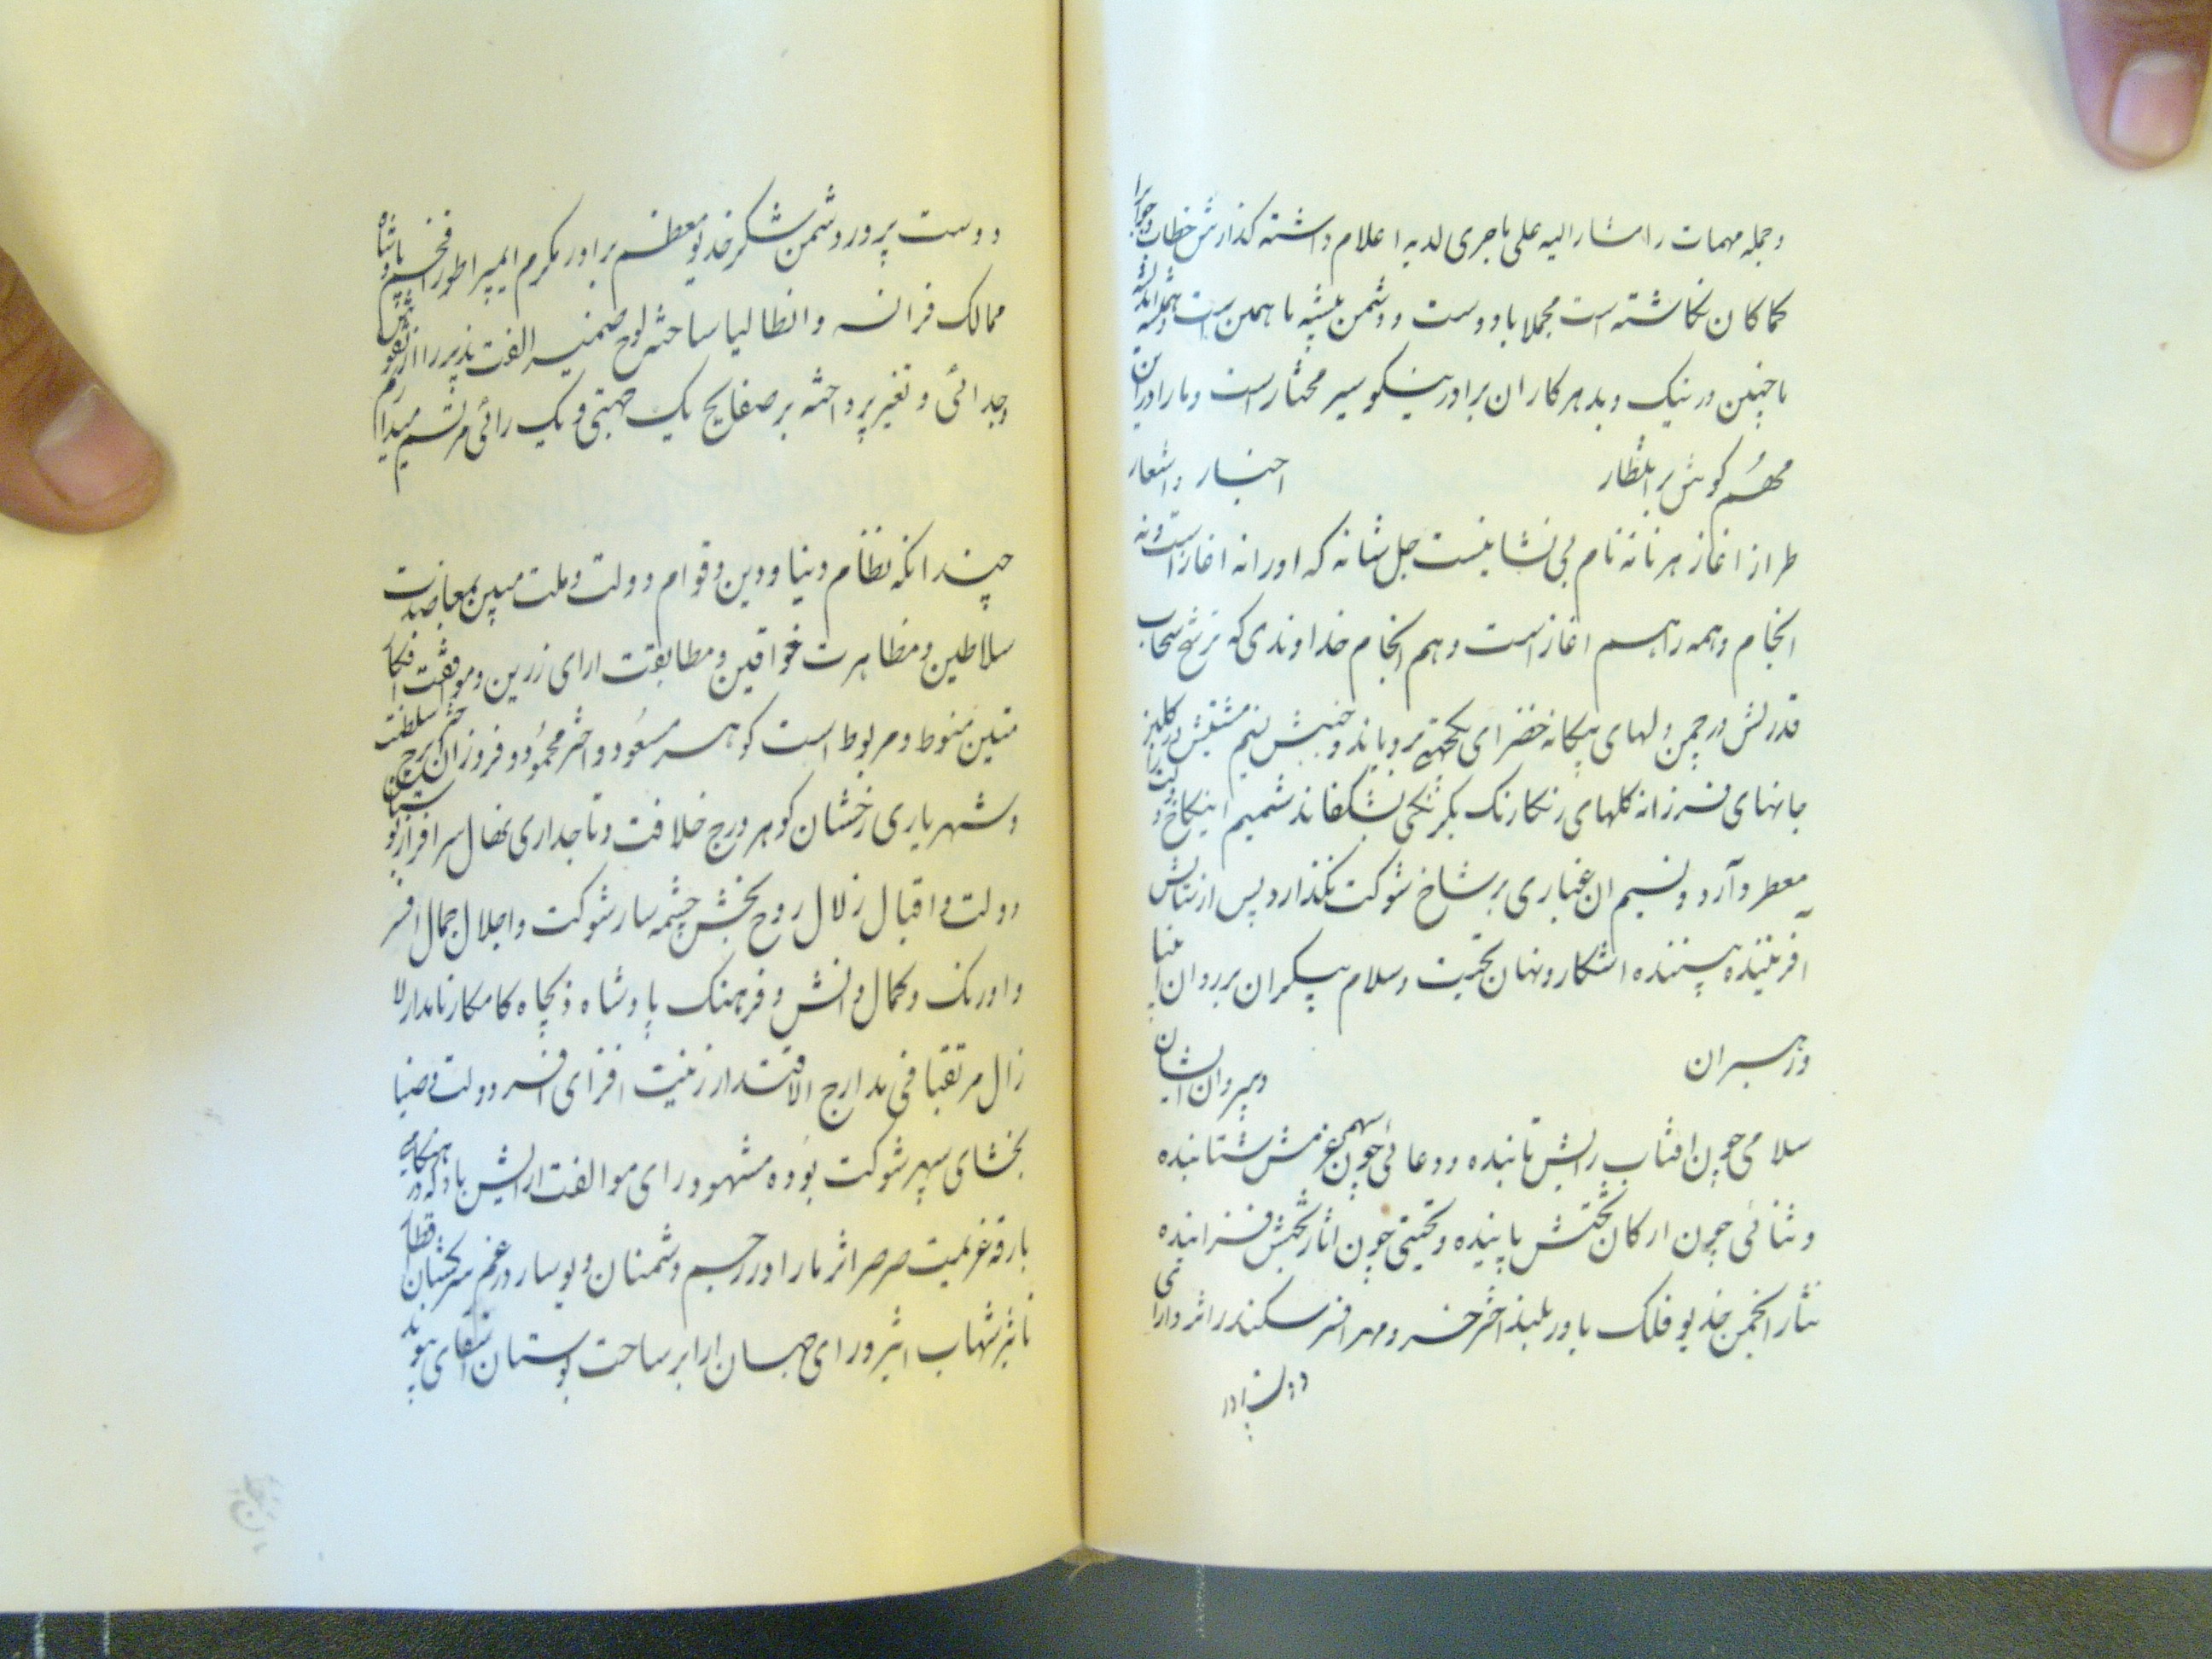 و جمله مهمات را مشار الیه علی ماجری لدیه اعلام داشته گذارش خطاب و جواب را
کماکان نگاشته است مجملا با دوست و دشمن
ما چنین در نیک و بد هر کار آن برادر نیکو سیر مختار است و ما را در این
مهم گوش بر انتظار اخبار و اشعار
طراز آغاز هر نامه نام بی نشانیست جل شانه که او را نه آغاز است و نه
انجام و همه را هم آغاز است و هم انجام خداوندی که ترشح سحاب
قدرتش در چمن دلهای بیگانه خضرای یکجهتی رویاند و جنبش نسیم مشیتش در گلبن
جانهای فرزانه گلهای رنگارنگ یکرنگی بشکفاند شمیم
معطر دارد و نسیم آن غباری بر شاخ شوکت نگذارد پس از ستایش
آفریننده آشکار و نهان تحیت و سلام بیکران بر روان انبیا
و رهبران و پیروان ایشان
سلامی چون آفتاب رایش تابنده و دعائی چون سهم عزمش شتابنده
و ثنائی چون ارکان بختش پاینده و تحیتی چون آثار تختش فزاینده
نثار انجمن خدیو فلک یاور بلند اختر خسرو مهر افسر سکندر اثر دارا
دوست پرور
دوست پرور دشمن شکر خدیو معظم برادر مکرم ایمپراطور افخم پادشاه
ممالک فرانسه و انطالیا ساخته لوح ضمیر الفت پذیر را از نقوش
و جدائی و تغییر پرداخته بر صفایح یک جهتی و یک رائی مرتسم میدارم
چندانکه نظام دنیا و دین و قوام دولت و ملت مبین بمعاضدت
سلاطین و مظاهرت خواقین و مطابقت آرای زرین و موافقت افکار
متین منوط و مربوط است گوهر مسعود و اختر محمود و فروزان برج سلطنت
و شهریاری رخشان گوهر درج خلافت و تاجداری نهال سرافراز بوستان
دولت و اقبال زلال روح بخش چشمه سار شوکت و اجلال جمال افسر
و اورنگ و کمال دانش و فرهنگ پادشاه ذیجاه کامکار نامدار لا
زال مرتقیا فی مدارج الاقتدار زینت افزای افسر دولت و ضیا
بخشای سپهر شوکت بوده مشهود رای موالفت آرایش باد که در هنگامی
بارقه عزیمت صرصر اثر ما را در رجم دشمنان دیو سار و رغم سرکشان
تاثیر شهاب اثیر و رای جهان آرا بر ساحت بوستان